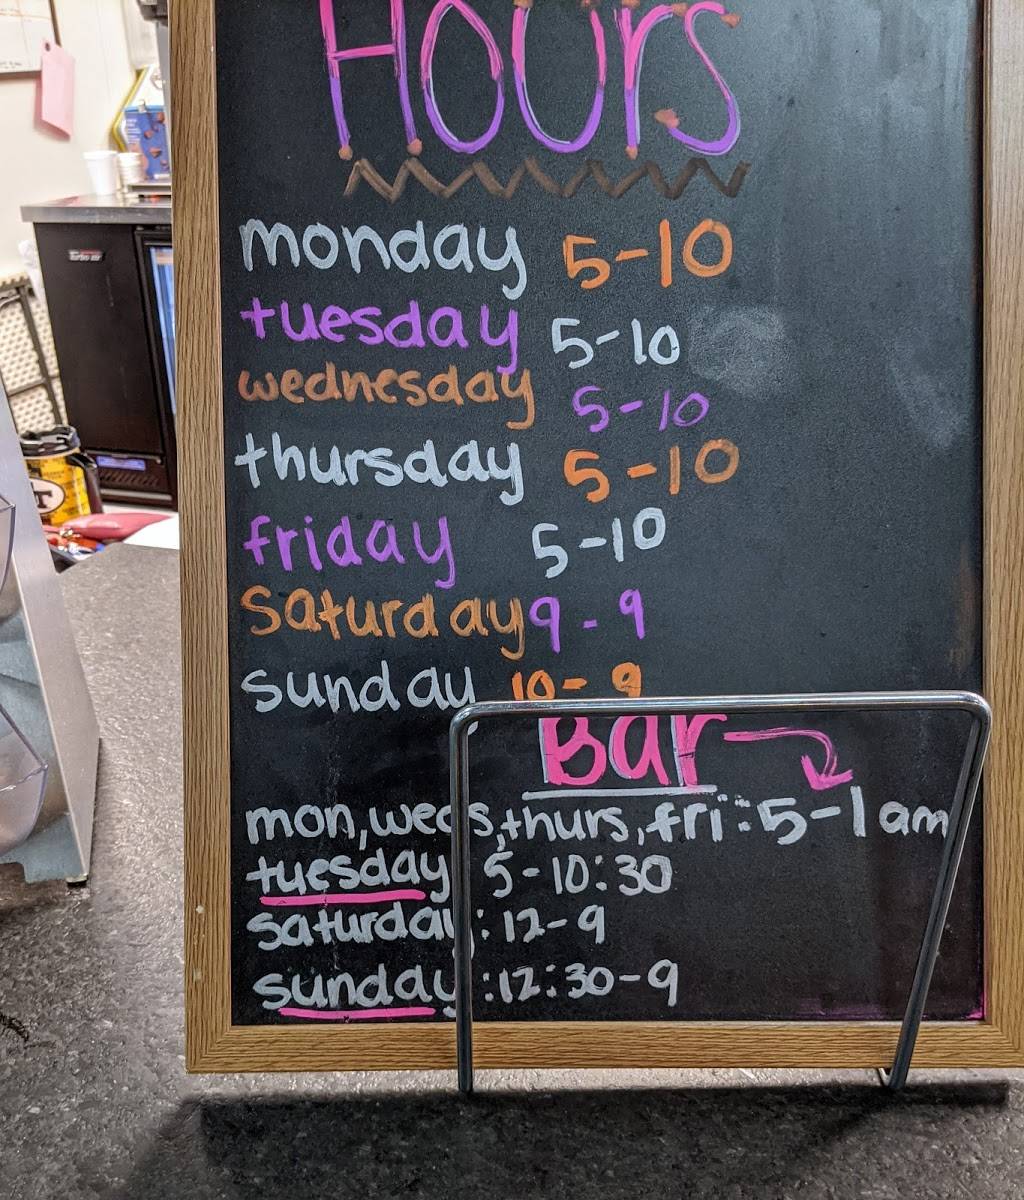 Hours
monday 5-10
tuesday 5-10
wednesday 5-10
thursday 5-10
friday 5-10
saturday 9-9
sunday 10-9
Bar
mon,weds,thurs,fri:5-1am
tuesday 5-10:30
saturday:12-9
sunday:12:30-9